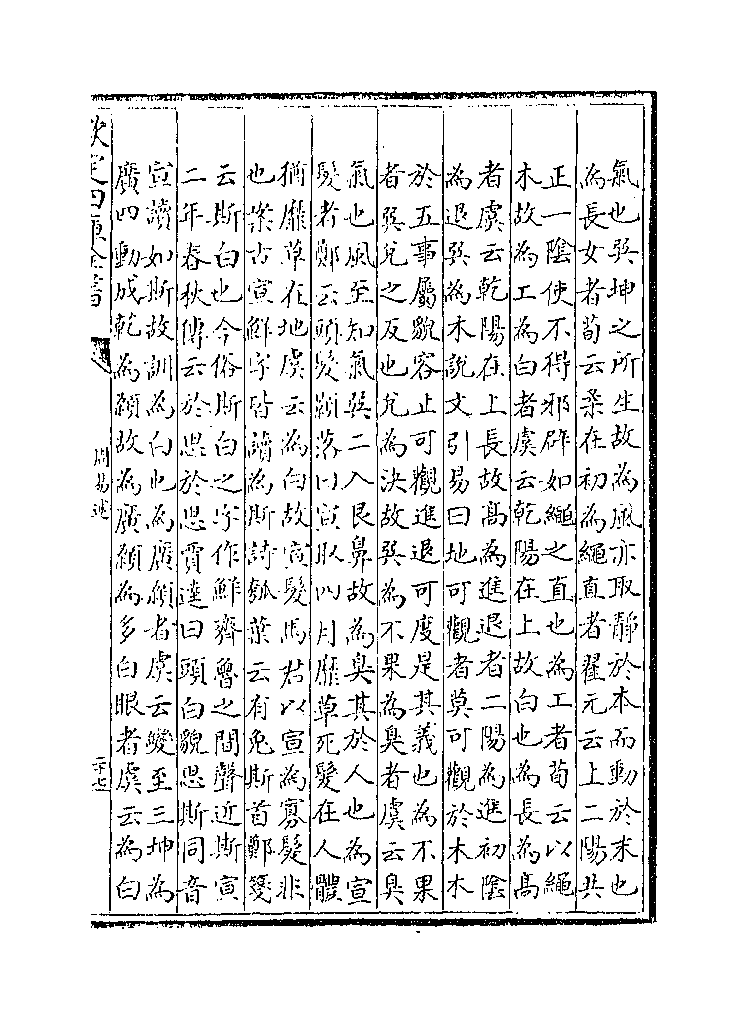 氣也巽坤之所生故為風亦取靜於本而動於末也
為長女者荀云柔在初為繩直者翟元云上二陽共
正一陰使不得邪辟如繩之直也為工者荀云以繩
木故為工為白者虞云乾陽在上故白也為長為高
者虞云乾陽在上長故高為進退者二陽為進初陰
為退巽為木說文引易曰地可觀者莫可觀於木木
於五事屬貌容止可觀進退可度是其義也為不果
者巽兌之反也兌為決故巽為不果為臭者虞云臭
氣也風至知氣巽二入艮鼻故為臭其於人也為宣
髮者鄭云頭髮顥落曰宣取四月靡草死髮在人體
猶靡草在地虞云為白故宣髮馬君以宣為寡髮非
也案古宣鮮字皆讀為斯詩瓠葉云有兔斯首鄭箋
云斯白也今俗斯白之字作鮮齊魯之間聲近斯宣
二年春秋傳云於思於思賈逵曰頭白貌思斯同音
宣讀如斯故訓為白也為廣顙者虞云變至三坤為
廣四動成乾為顙故為廣顙為多白眼者虞云為白
欽定四庫全書
周易述
二十七